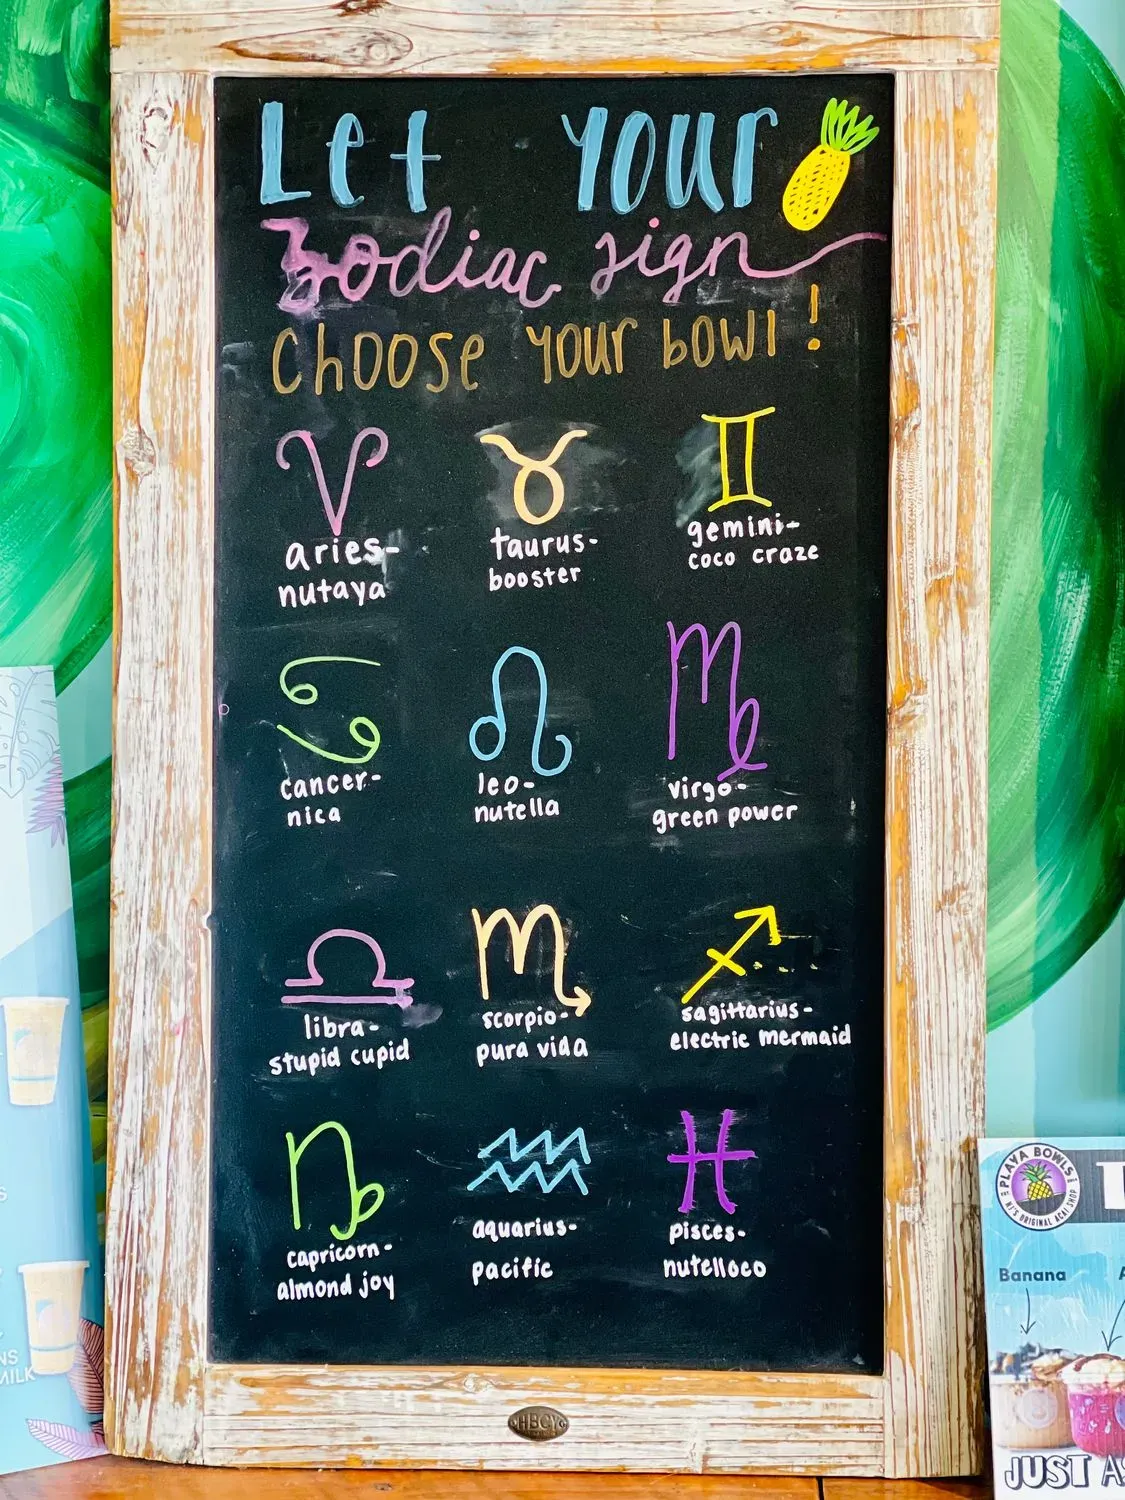 Let your
Zodiac sign
Choose your bowl!
aries-
nutaya
taurus-
booster
gemini-
coco craze
cancer-
nica
leo-
nutella
virgo-
green power
libra-
stupid cupid
scorpio-
pura vida
sagittarius-
electric mermaid
capricorn-
almond joy
aquarius-
pacific
pisces-
nutelloco
HBCY
PLAYA BOWLS
NJ'S ORIGINAL ACAI SHOP
Banana
JUST
MILK